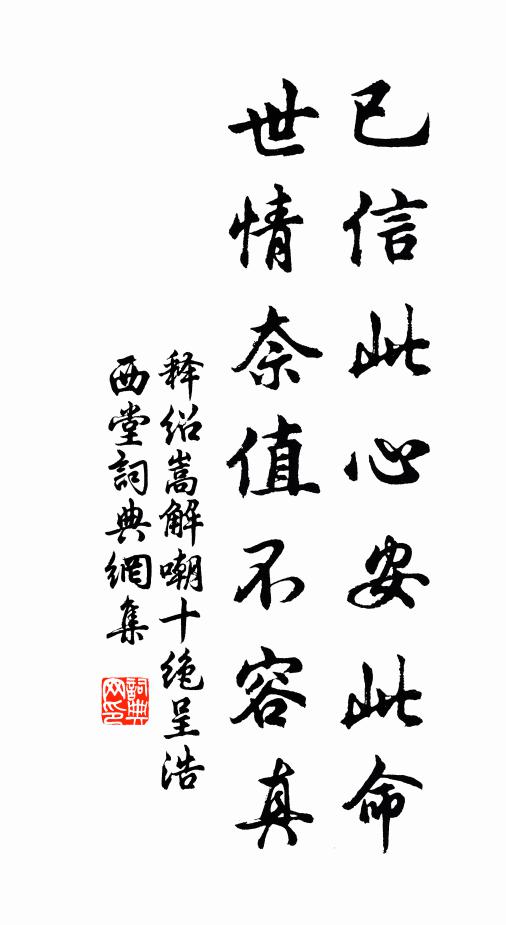 已信此心安此命
世情奈值不容真
释绍嵩解嘲十绝呈浩
西堂詞典網集
詞典
网印